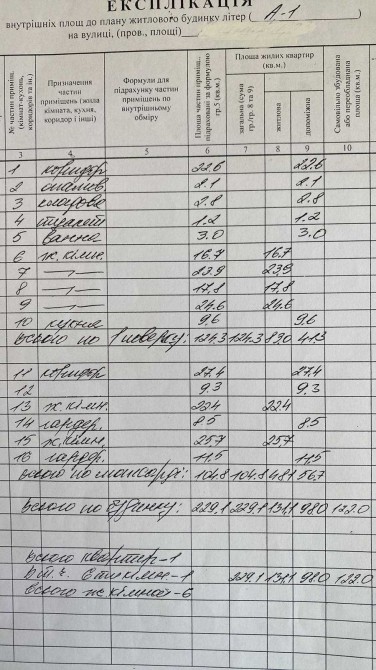 ЕКСПЛІКАЦІЯ
внутрішніх площ до плану житлового будинку літер ( А-1 )
на вулиці, (пров., площі)
№ частин приміщ. (кімнат-кухонь, коридорів та ін.) Призначення частин приміщень (жила кімната, кухня, коридор і інші) Формули для підрахунку частин приміщень по внутрішньому обміру Площа частин приміщ., підраховані за формулою гр.5 (кв.м.) Площа жилих квартир (кв.м.) загальна (сума гр./гр. 8 та 9) житлова допоміжна Самочинно збудована або переобладнана площа (кв.м.)
3 4 5 6 7 8 9 10
1 коридор 22.6 22.6
2 2.1 2.1
3 2.8 2.8
4 туалет 1.2 1.2
5 ванна 3.0 3.0
6 ж.кімн. 16.7 16.7
7 —"— 23.9 23.9
8 —"— 17.8 17.8
9 —"— 24.6 24.6
10 кухня 9.6 9.6
Всього по 1 поверху: 124.3 124.3 83.0 41.3
11 коридор 27.4 27.4
12 9.3 9.3
13 ж.кімн. 22.4 22.4
14 гардер. 8.5 8.5
15 ж.кімн. 25.7 25.7
16 гардер. 11.5 11.5
Всього по мансарді: 104.8 104.8 48.1 56.7
Всього по будинку: 229.1 229.1 131.1 98.0 122.0
Всього квартир-1
в т.ч. 6тикімн-1 229.1 131.1 98.0 122.0
Всього ж кімнат-6